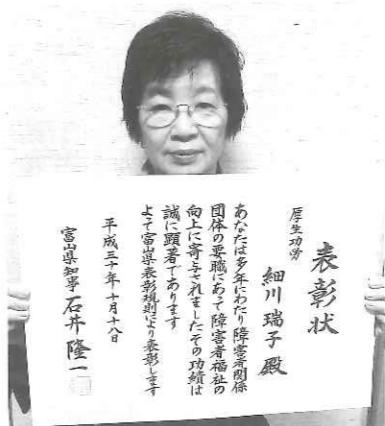 表彰状
厚生功労
細川瑞子殿
あなたは多年にわたり障害者関係
団体の要職にあって障害者福祉の
向上に寄与されましたその功績は
誠に顕著であります
よって富山県表彰規則により表彰します
平成三十年十月十八日
富山県知事 石井隆一